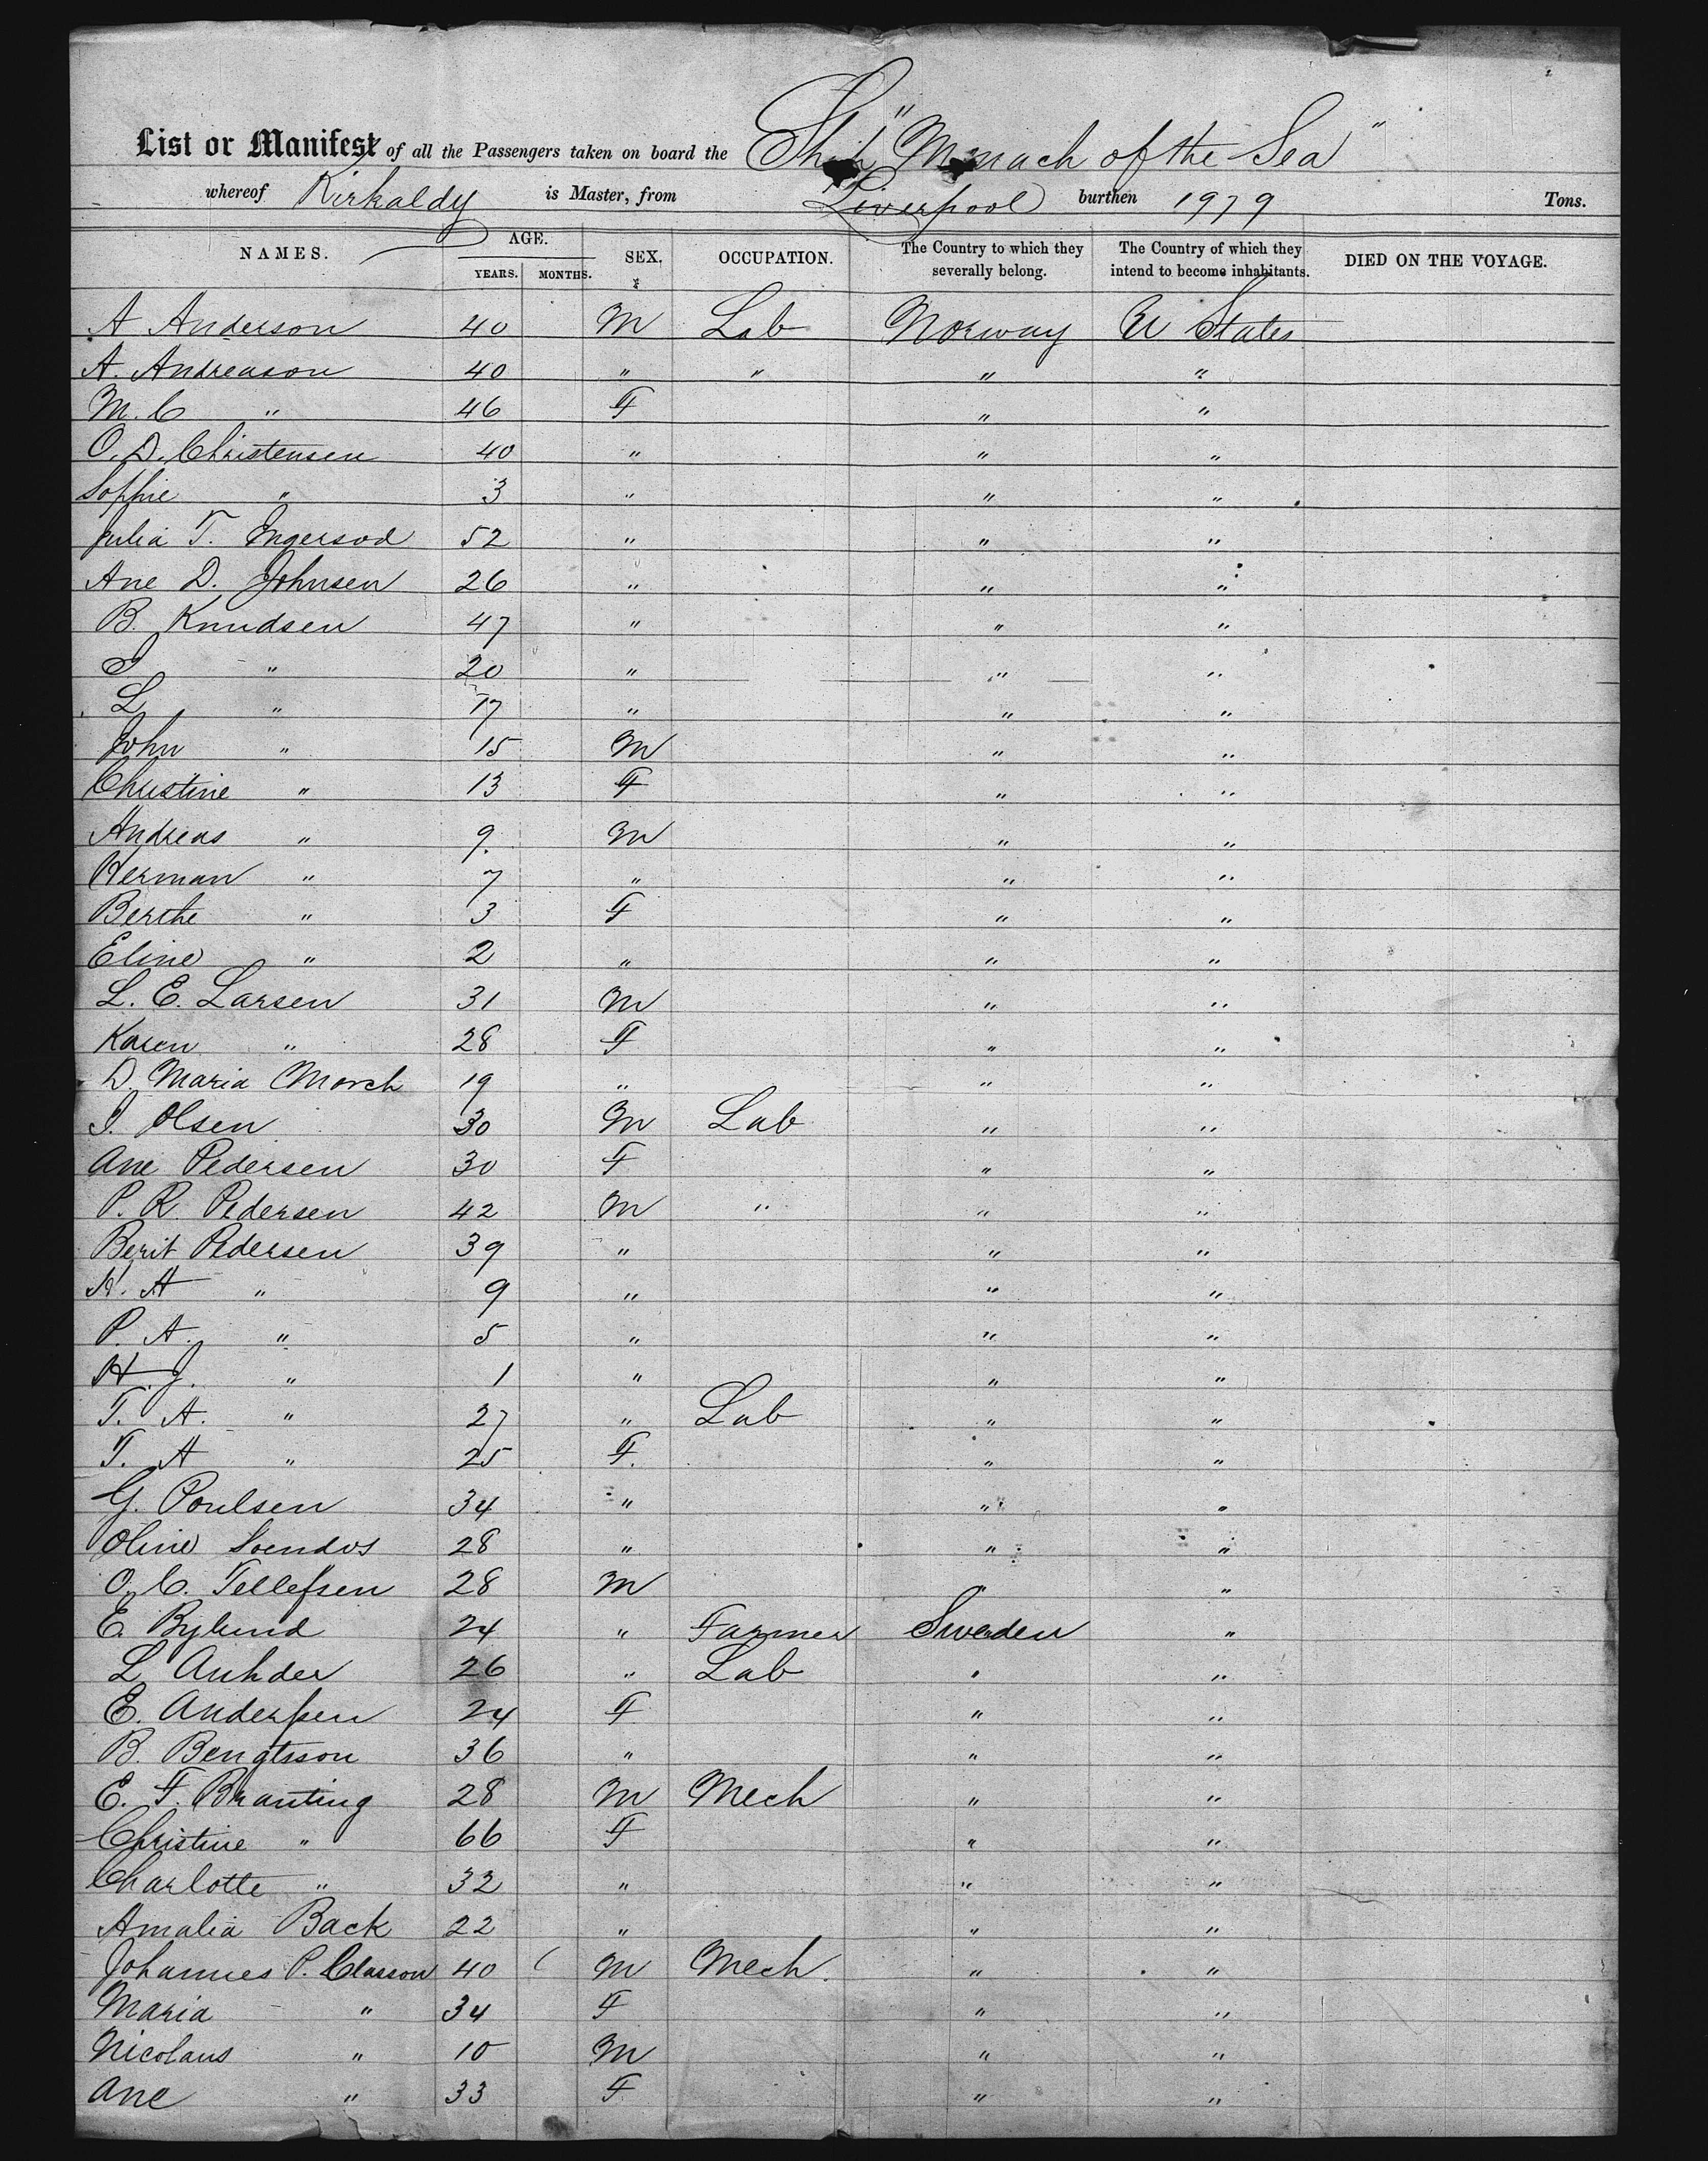 List or Manifest of all the Passengers taken on board the Ship "Monach of the Sea"
whereof Kirkaldy is Master, from Liverpool burthen 1979 Tons.
NAMES. AGE. YEARS. MONTHS. SEX. OCCUPATION. The Country to which they severally belong. The Country of which they intend to become inhabitants. DIED ON THE VOYAGE.
A Anderson 40 M Lab Norway U States
A. Andreason 40 " " " "
M. C " 46 F " "
O. D. Christensen 40 " " "
Sophie " 3 " " "
Julia T. Ingersod 52 " " "
Ane D. Johnsen 26 " " "
B. Knudsen 47 " " "
I " 20 " " "
L " 17 " " "
John " 15 M " "
Christine " 13 F " "
Andreas " 9. M " "
Herman " 7 " " "
Berthe " 3 F " "
Eline " 2 " " "
L. E. Larsen 31 M " "
Karen " 28 F " "
D. Maria Morch 19 " " "
I. Olsen 30 M Lab " "
Ane Pedersen 30 F " "
P. R. Pedersen 42 M " " "
Berit Pedersen 39 " " "
A " 9 " " "
P. A. " 5 " " "
H. J. " 1 " " "
T. A. " 27 " Lab " "
T. A " 25 F. " "
G. Poulsen 34 " " "
Oline Soendos 28 " " "
O. C. Tellefsen 28 M " "
E. Bylund 24 " Farmer Sweden "
L 26 " Lab " "
E. Anderssen 24 F " "
B. Bengtsson 36 " " "
E. F. Branting 28 M Mech " "
Christine " 66 F " "
Charlotte " 32 " " "
Amalia Back 22 " " "
Johannes P. Classon 40 M Mech. " "
Maria " 34 F " "
Nicolaus " 10 M " "
Ane " 33 F " "